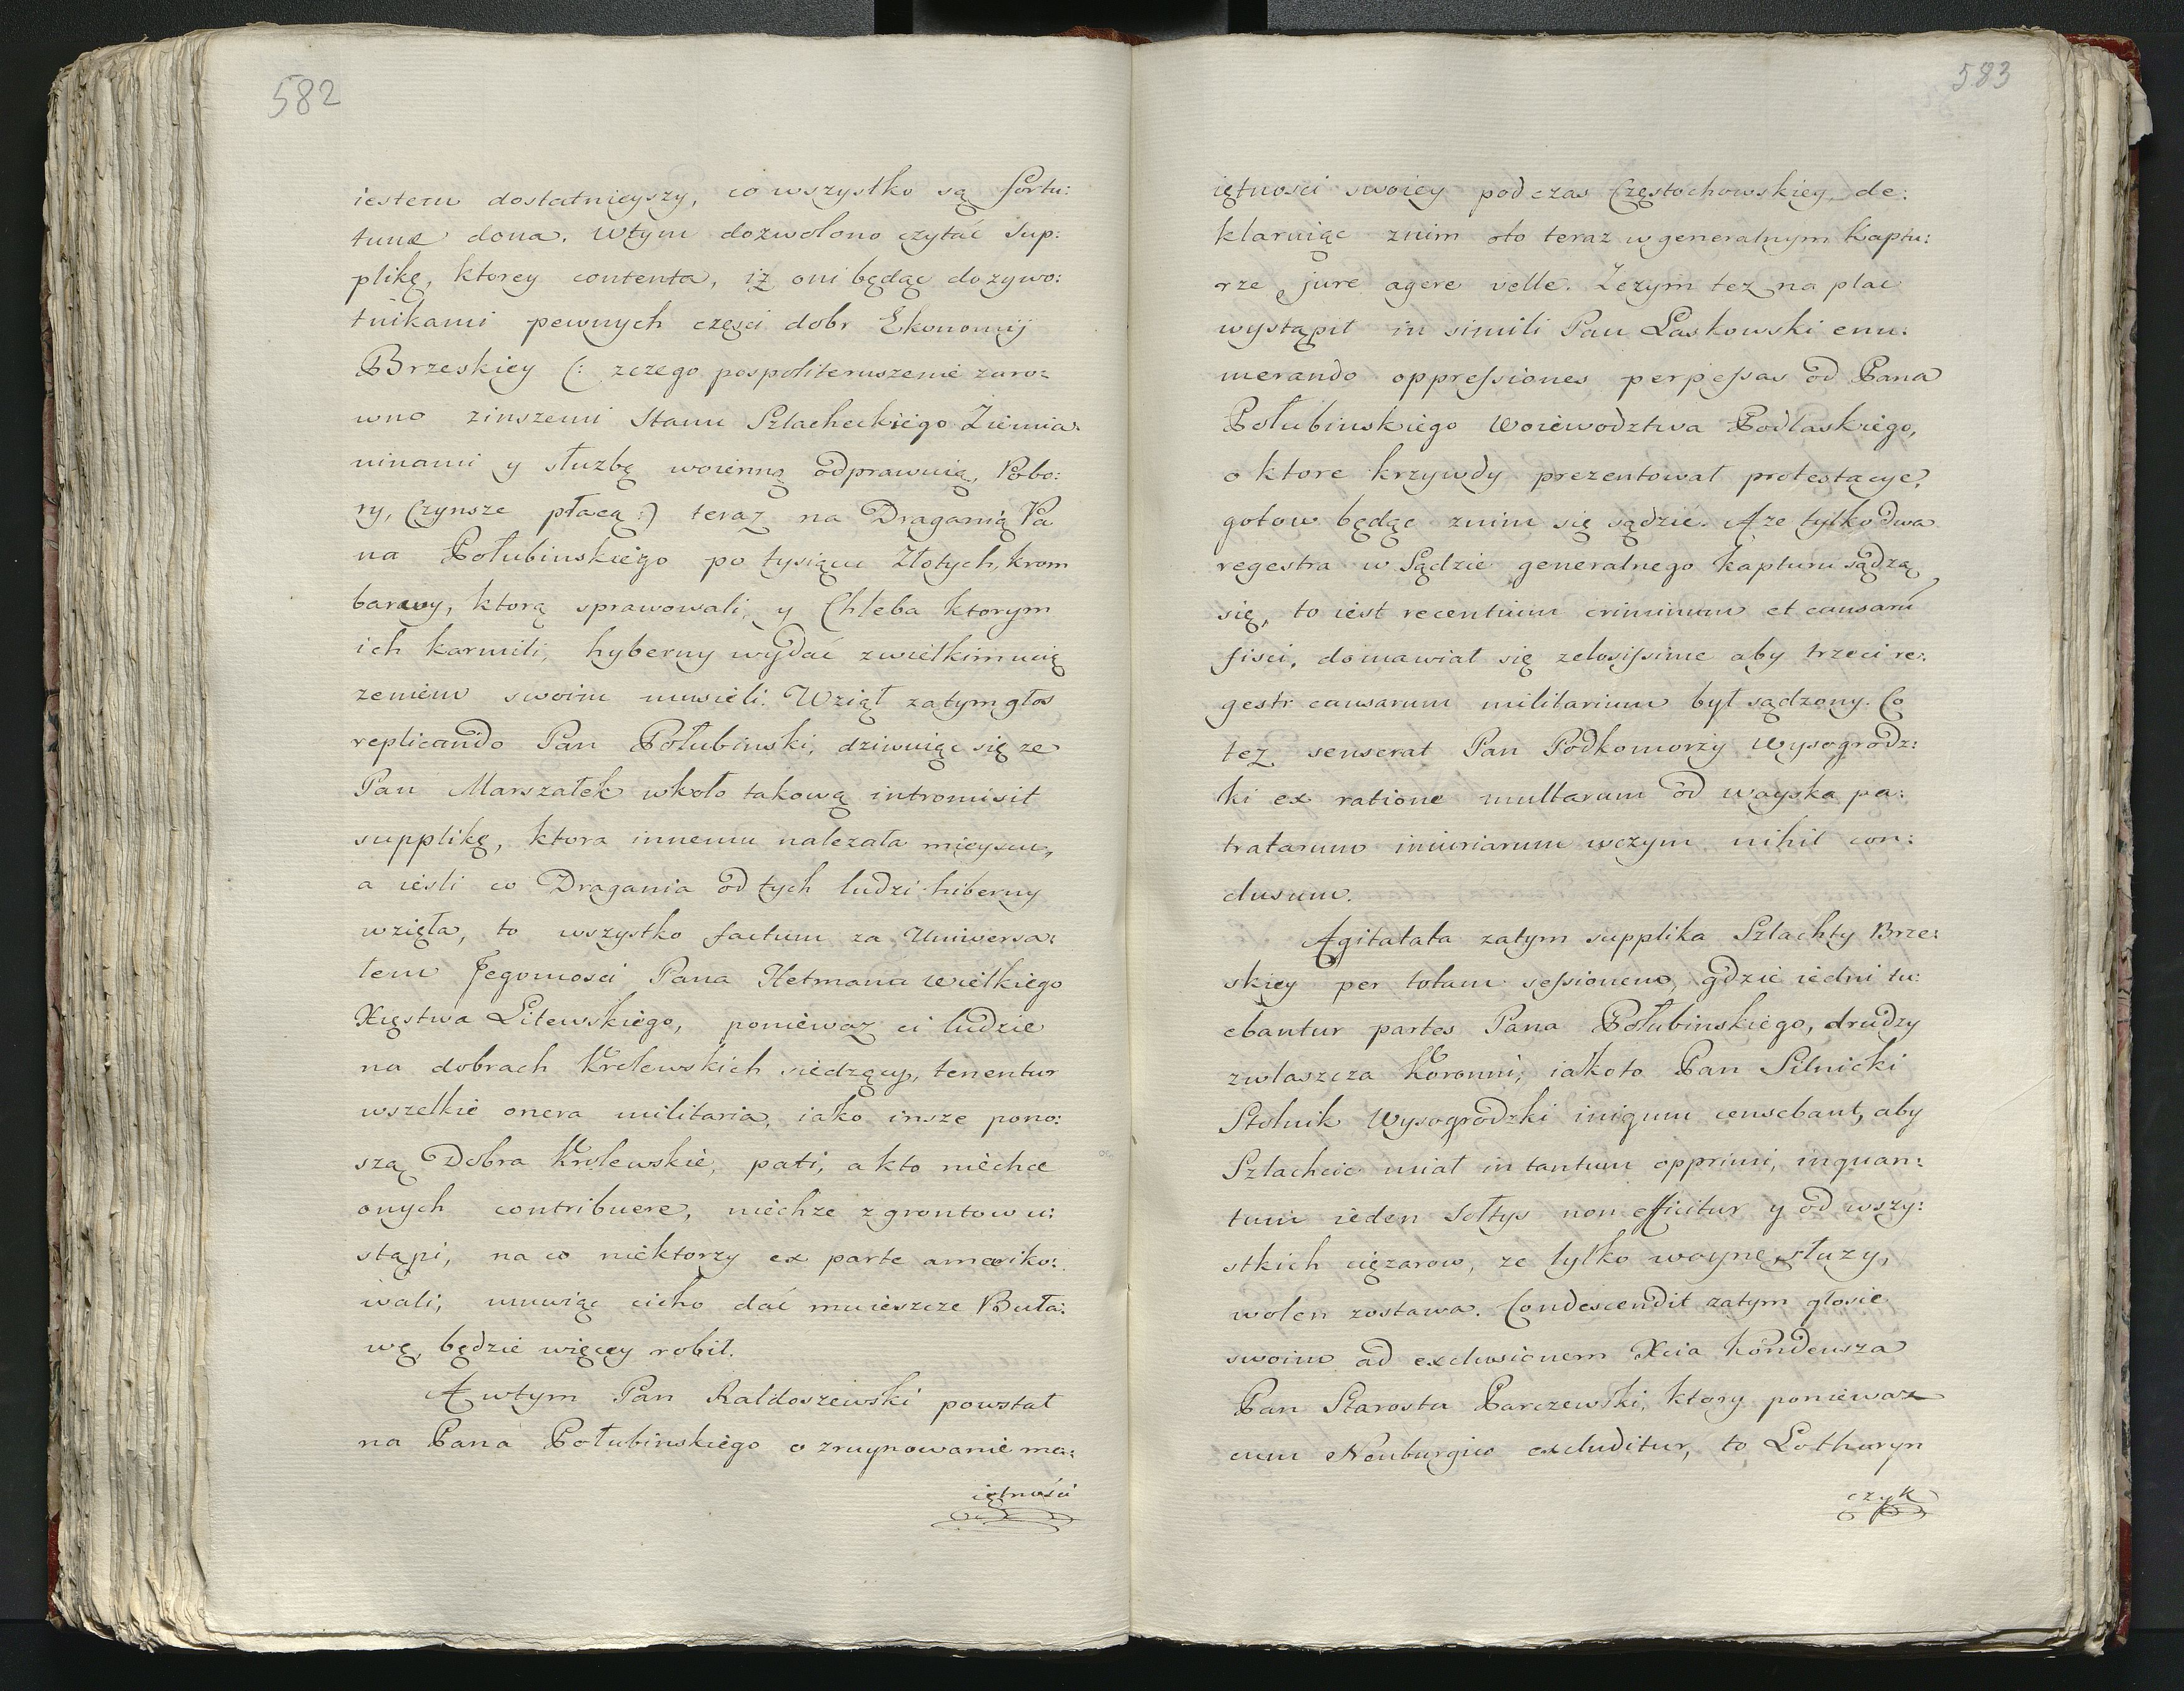 582
iestem dostatnieyszy, co wszystko są fortu:
tunæ dona. Wtym dozwolono czytać sup:
plikę, ktorey contenta, iz oni będąc dozywo:
tnikami pewnych częsci dobr Ekonomij
Brzeskiey (: zczego pospoliteruszenie zaro:
wno zinszemi Stanu Szlacheckiego Ziemia:
ninami y słuzbę woienną odprawuią, Pobo:
ry, Czynsze płacą :) teraz na Draganią Pa
na Połubinskiego po tysiącu Złotych, krom
barwy, ktorą sprawowali, y Chleba ktorym
ich karmili, hyberny wydać zwielkim ucią
zeniem swoim musieli. Wziął zatym głos
replicando Pan Połubinski, dziwuiąc się ze
Pan Marszałek wkoło takową intromisit
supplikę, ktora innemu nalezała mieyscu,
a iesli co Dragania od tych ludzi hiberny
wzięła, to wszystko factum za Uniwersa:
łem Jegomosci Pana Hetmana Wielkiego
Xięstwa Litewskiego, poniewaz ci ludzie
na dobrach Krolewskich siedzący, tenentur
wszelkie onera militaria, iako insze pono:
szą Dobra Krolewskie, pati, a kto niechce
onych contribuere, niechze z grontow u:
stąpi, na co niektorzy ex parte amariko:
wali, mowiąc cicho dać mu ieszcze Buła:
wę, będzie więcey robił.
A wtym Pan Raldoszewski powstał
na Pana Połubinskiego o zruynowanie ma:
iętności
583
iętnosci swoiey podczas Częstochowskiey, de:
klaruiąc znim oto teraz w generalnym Kaptu:
rze, jure agere velle. Zczym tez na plac
wystąpił in simili Pan Laskowski enu:
merando oppressiones perpessas od Pana
Połubinskiego Woiewodztwa Podlaskiego,
o ktore krzywdy prezentował protestacye,
gotow będąc znim się sądzić. A ze tylko dwa
regestra w Sądzie generalnego Kapturu sądzą
się, to iest recentium criminum et causarū
fisci, domawiał się zelosissime aby trzeci re:
gestr causarum militarium był sądzony. Co
tez senserat Pan Podkomorzy Wysogrodz:
ki ex ratione multarum od woyska pa:
tratarum iniuriarum wczym nihil con:
clusum.
Agitatata zatym supplika Szlachty Brze:
skiey per totam sessionem, gdzie iedni tu:
ebantur partes Pana Połubinskiego, drudzy
zwłaszcza Koronni, iakoto Pan Silnicki
Stolnik Wysogrodzki iniqum censebant, aby
Szlachcic miał in tantum opprimi, inquan:
tum ieden Sołtys non efficitur y od wszy:
stkich cięzarow, ze tylko woynę słuzy,
wolen zostawa. Condescendit zatym głosie
swoim ad exclusionem Xcia Kondeusza
Pan Starosta Parczewski, ktory poniewaz
cum Neuburgico excluditur, to Lotharyn
czyk